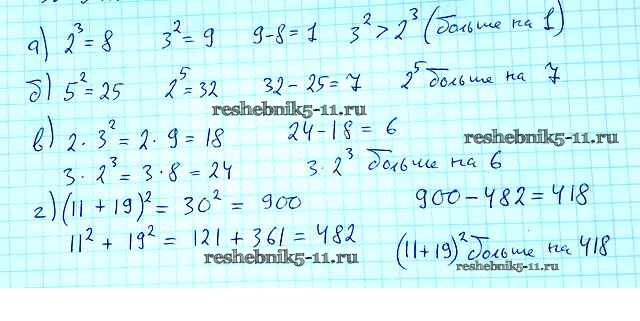 а) 2³ = 8 3² = 9 9-8 = 1 3² > 2³ (больше на 1)
б) 5² = 25 2⁵ = 32 32 - 25 = 7 2⁵ больше на 7
reshebnik5-11.ru
в) 2 · 3² = 2 · 9 = 18 24 - 18 = 6
reshebnik5-11.ru
3 · 2³ = 3 · 8 = 24 3 · 2³ больше на 6
г) (11 + 19)² = 30² = 900 900 - 482 = 418
11² + 19² = 121 + 361 = 482 (11+19)² больше на 418
reshebnik5-11.ru
reshebnik5-11.ru